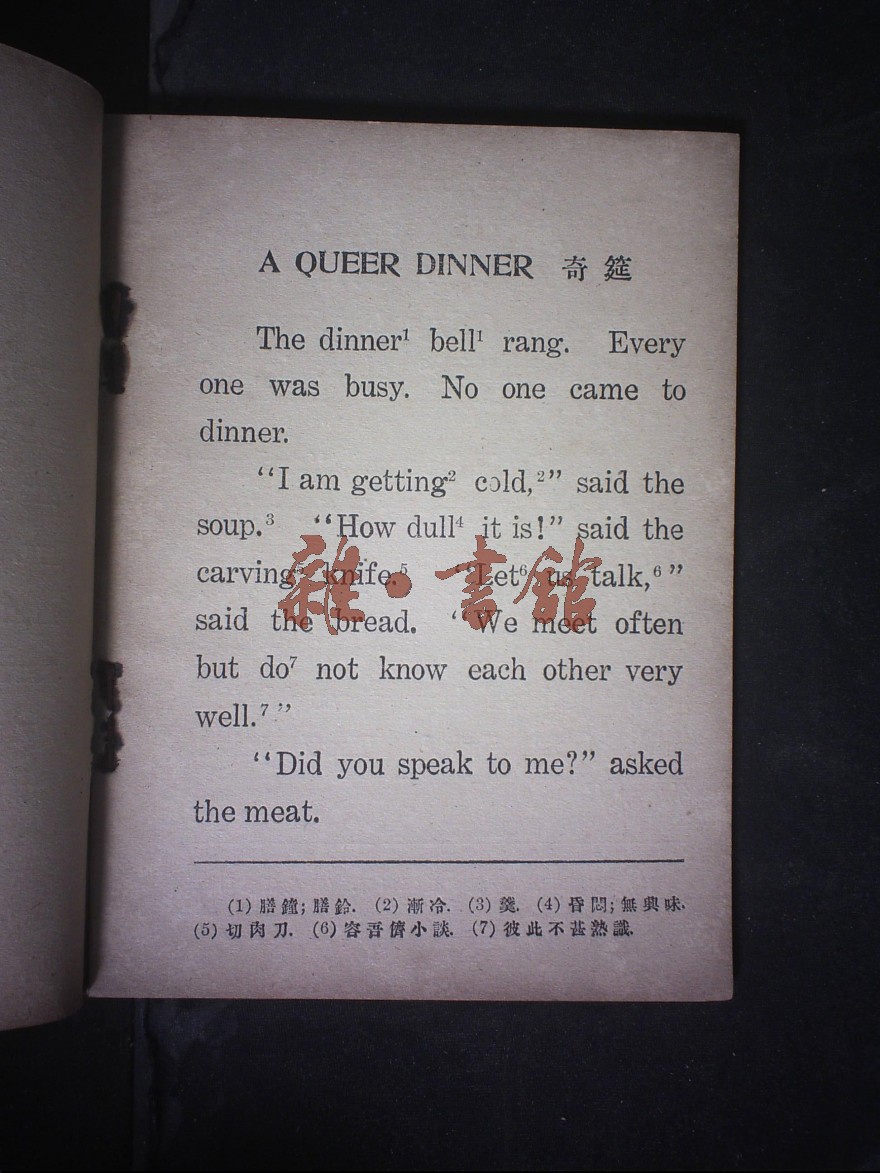 A QUEER DINNER 奇筵
The dinner¹ bell¹ rang. Every
one was busy. No one came to
dinner.
“I am getting² cold,²” said the
soup.³ “How dull⁴ it is!” said the
carving⁵ knife.⁵ “Let⁶ us talk,⁶”
said the bread. “We meet often
but do⁷ not know each other very
well.⁷”
“Did you speak to me?” asked
the meat.
(1) 膳鐘；膳鈴. (2) 漸冷. (3) 羹. (4) 昏悶；無興味.
(5) 切肉刀. (6) 容吾儕小談. (7) 彼此不甚熟識.
雜·書館